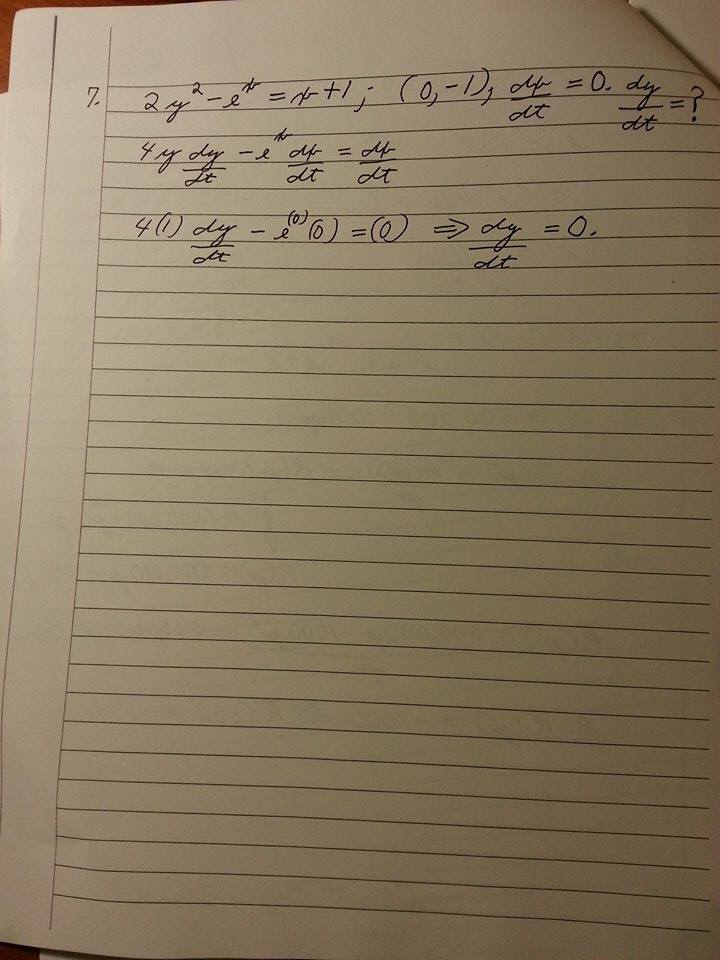 7. 2y² - eˣ = x + 1; (0, -1), dx/dt = 0. dy/dt = ?
4y dy/dt - eˣ dx/dt = dx/dt
4(1) dy/dt - e⁽⁰⁾(0) = (0) ⇒ dy/dt = 0.